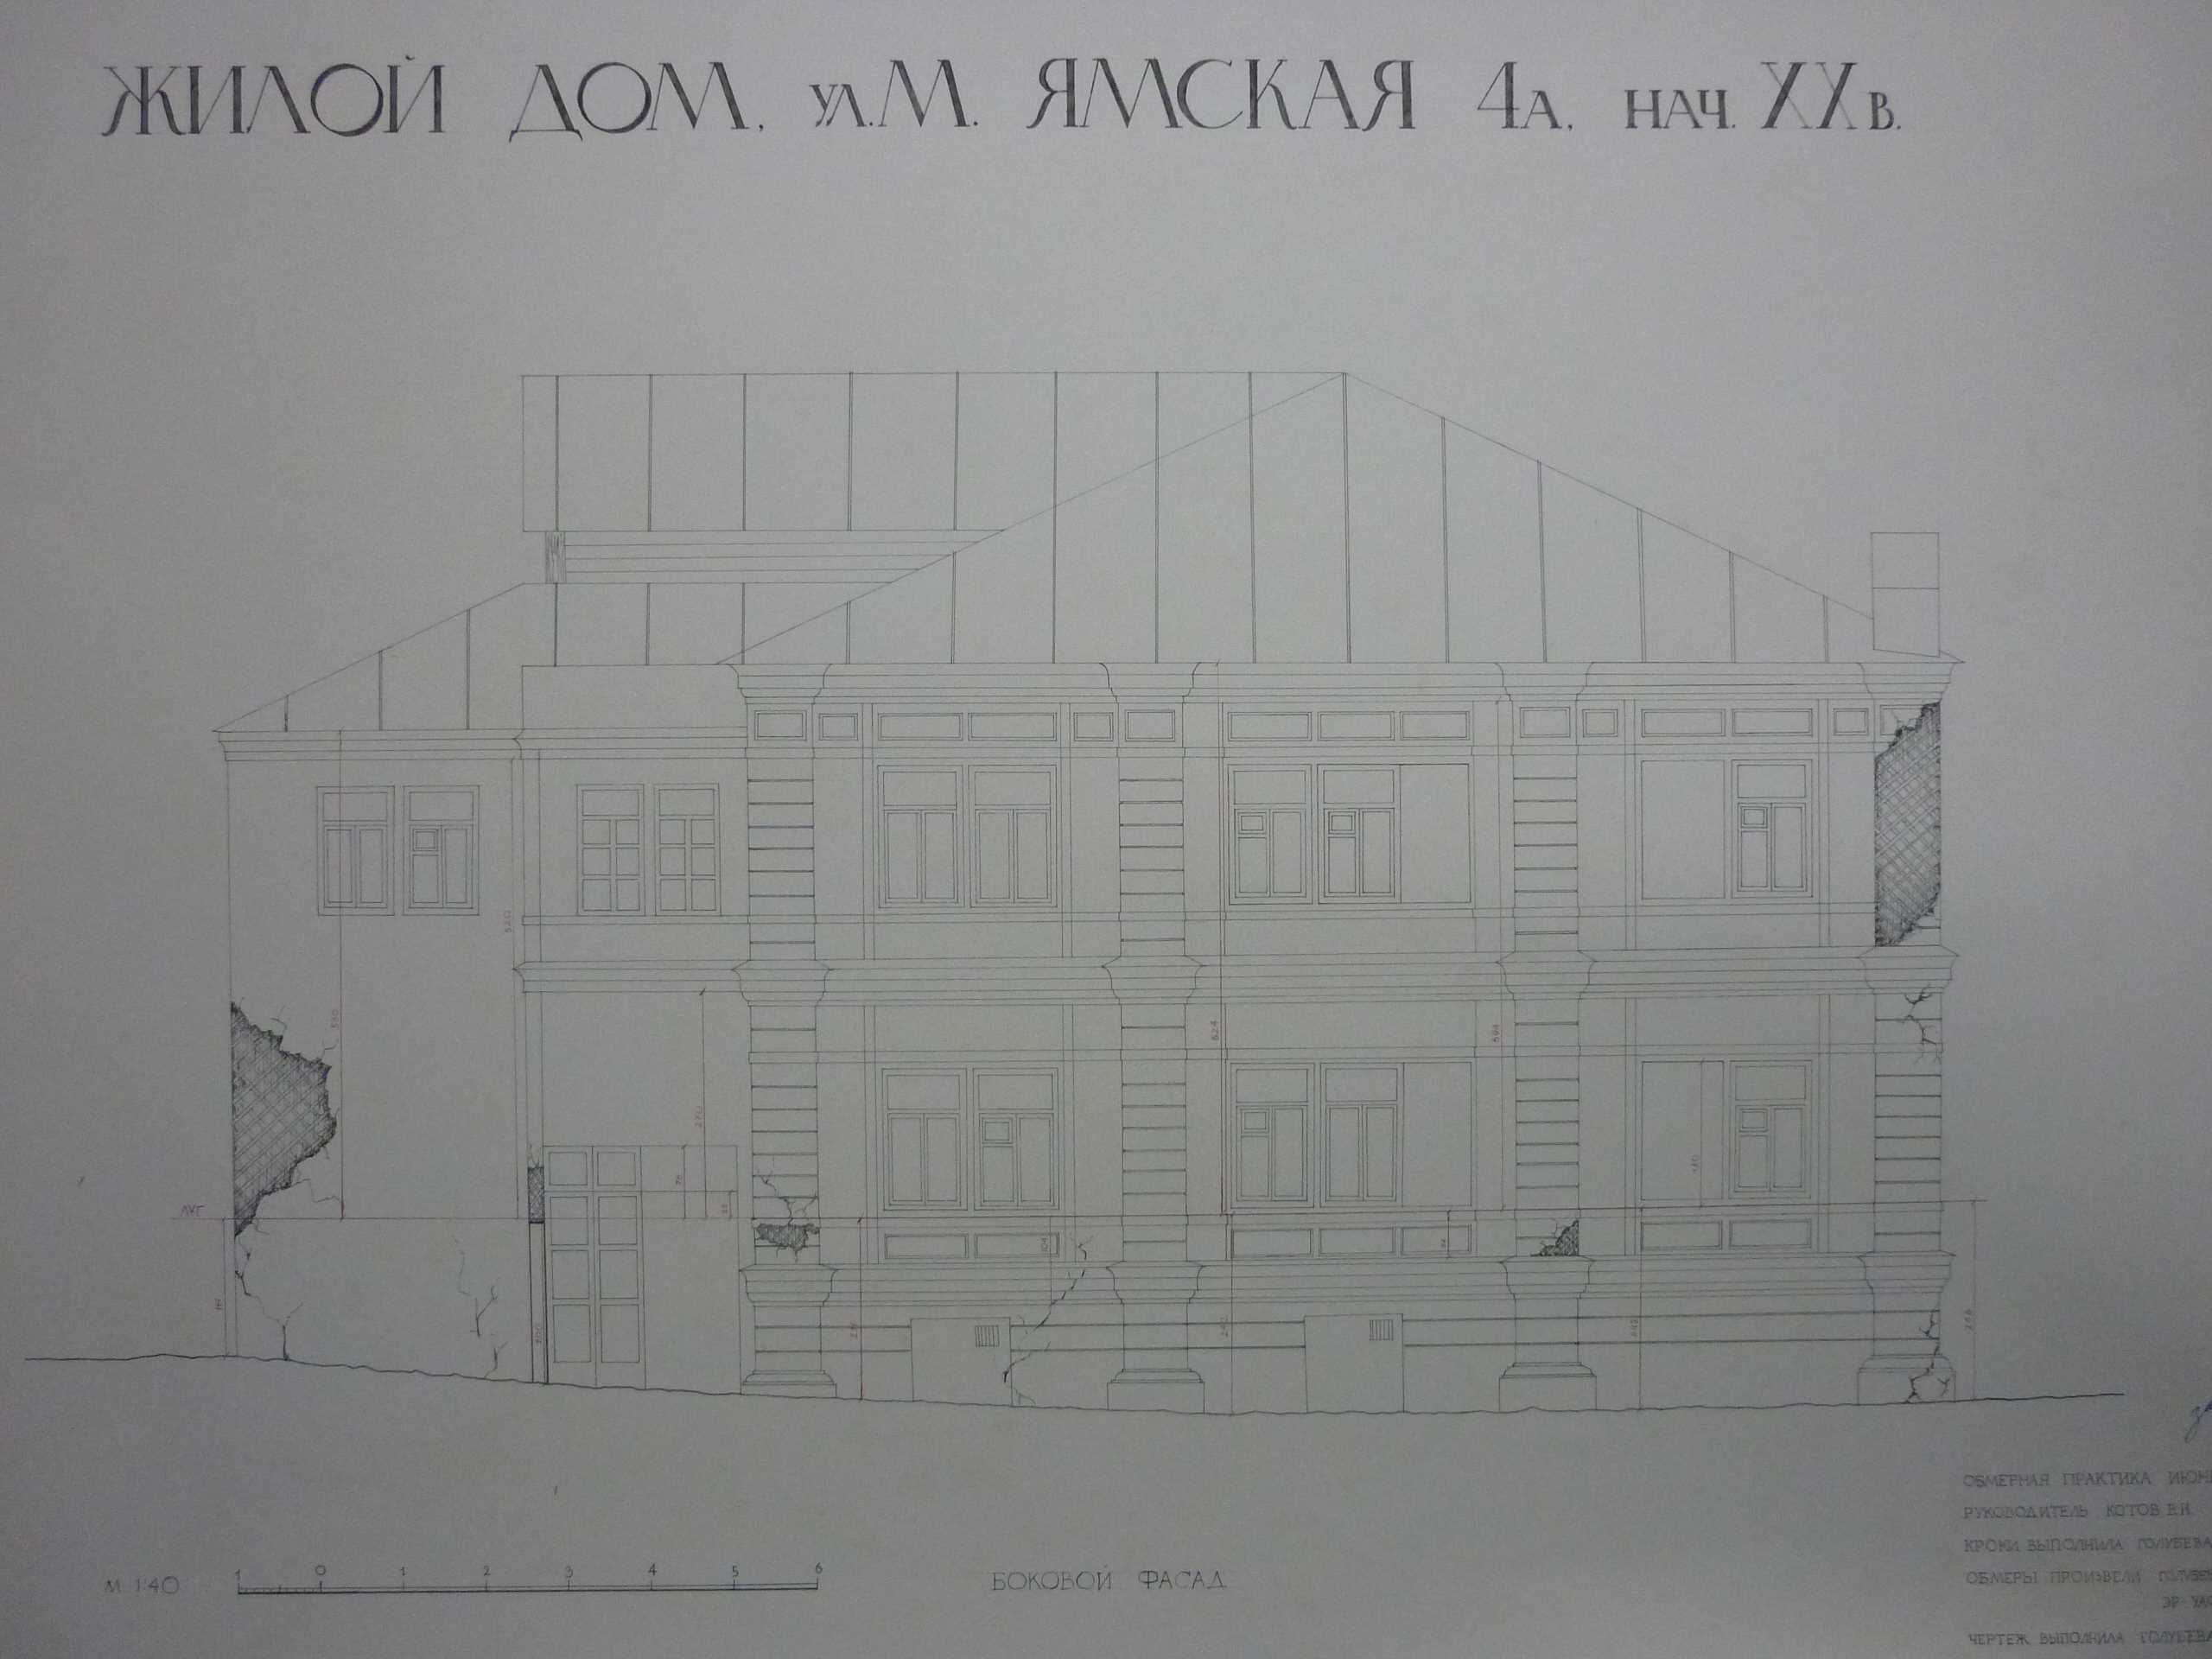 ЖИЛОЙ ДОМ, ул. М. ЯМСКАЯ 4А, НАЧ. XX В.
520
590
624
594
270
140
ЛУГ
104
200
242
242
248
М 1:40
1 0 1 2 3 4 5 6
БОКОВОЙ ФАСАД
ОБМЕРНАЯ ПРАКТИКА ИЮН
РУКОВОДИТЕЛЬ КОТОВ В.Н.
КРОКИ ВЫПОЛНИЛА ГОЛУБЕВА
ОБМЕРЫ ПРОИЗВЕЛИ ГОЛУБЕ
ЧЕРТЕЖ ВЫПОЛНИЛА ГОЛУБЕВА